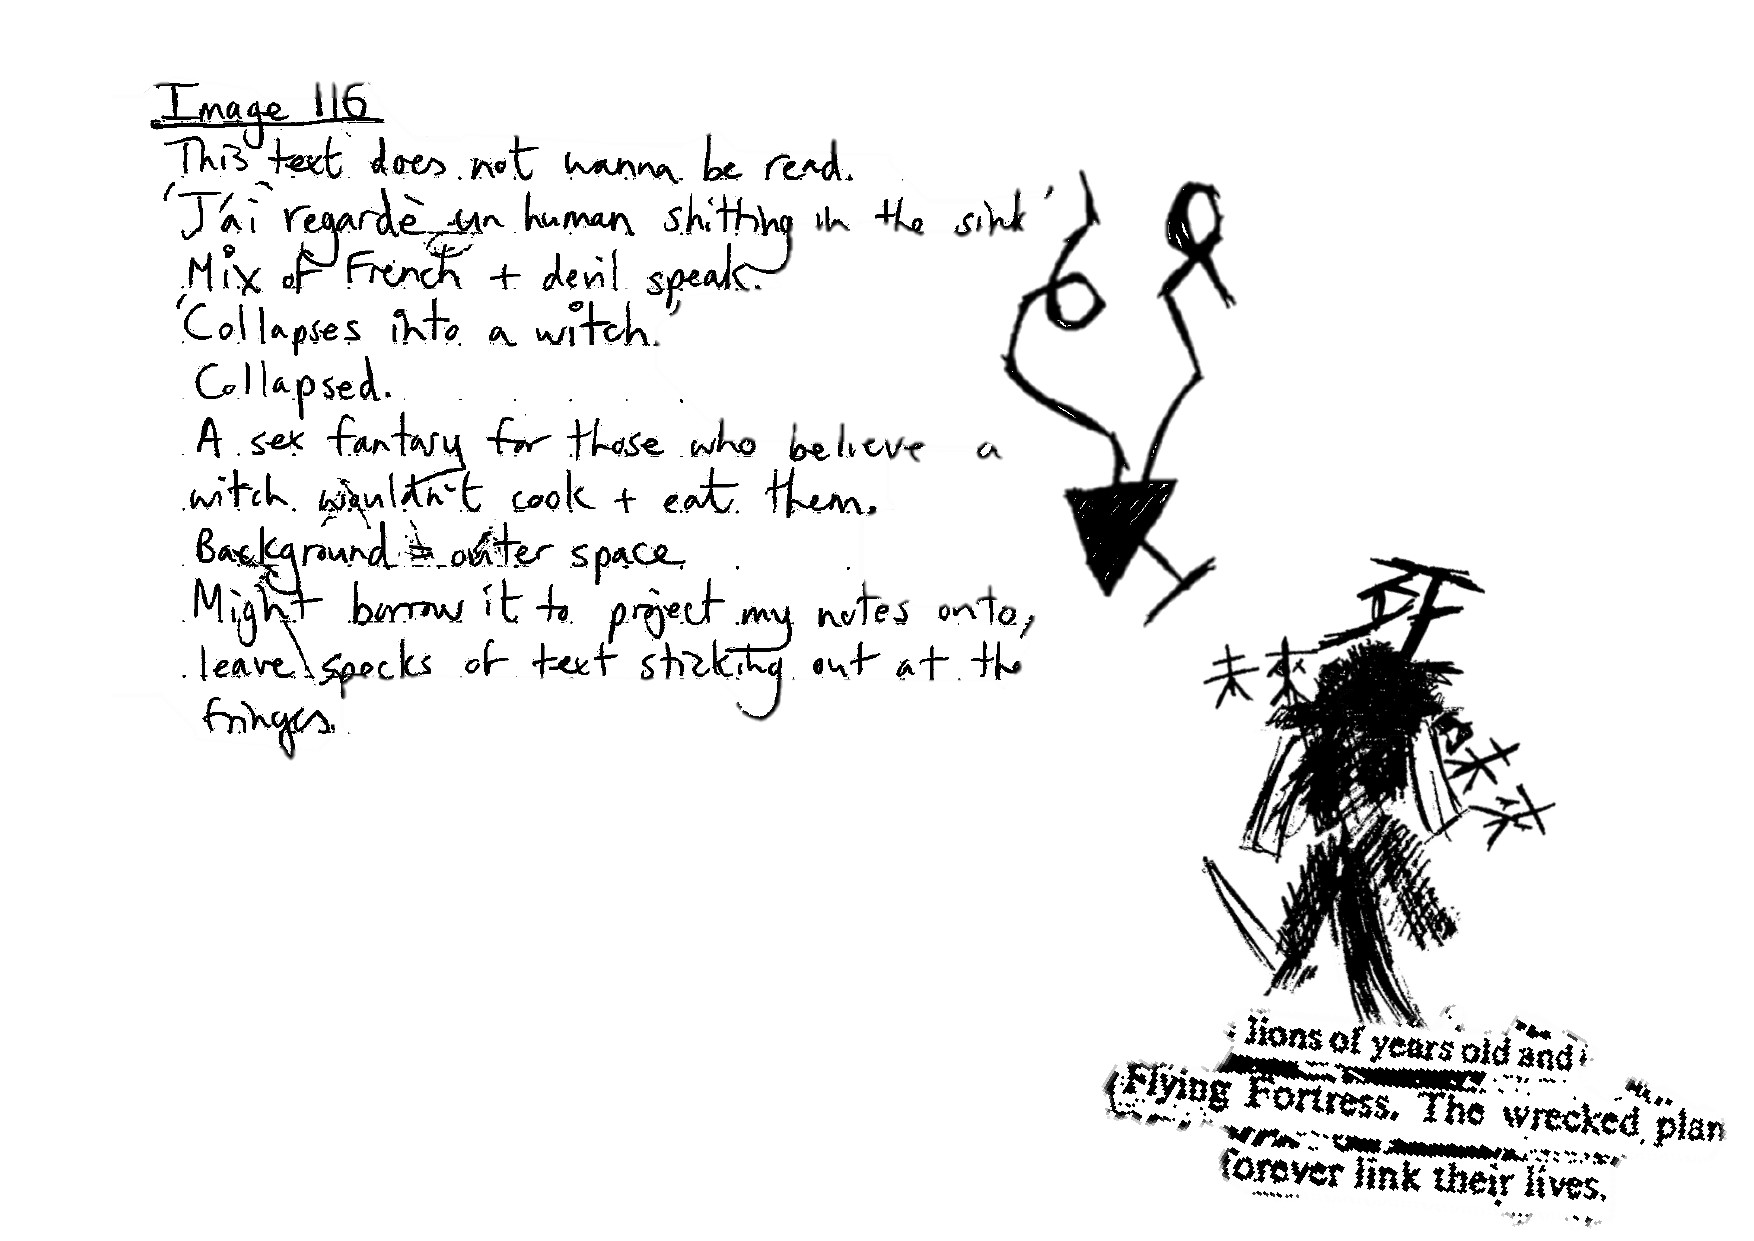 Image 116
This text does not wanna be read.
'J'ai regardè un human shitting in the sink'
Mix of French + devil speak.
'Collapses into a witch.'
Collapsed.
A sex fantasy for those who believe a
witch wouldn't cook + eat them.
Background = outer space
Might borrow it to project my notes onto,
leave specks of text sticking out at the
fringes.
lions of years old and
Flying Fortress. The wrecked plan
forever link their lives.